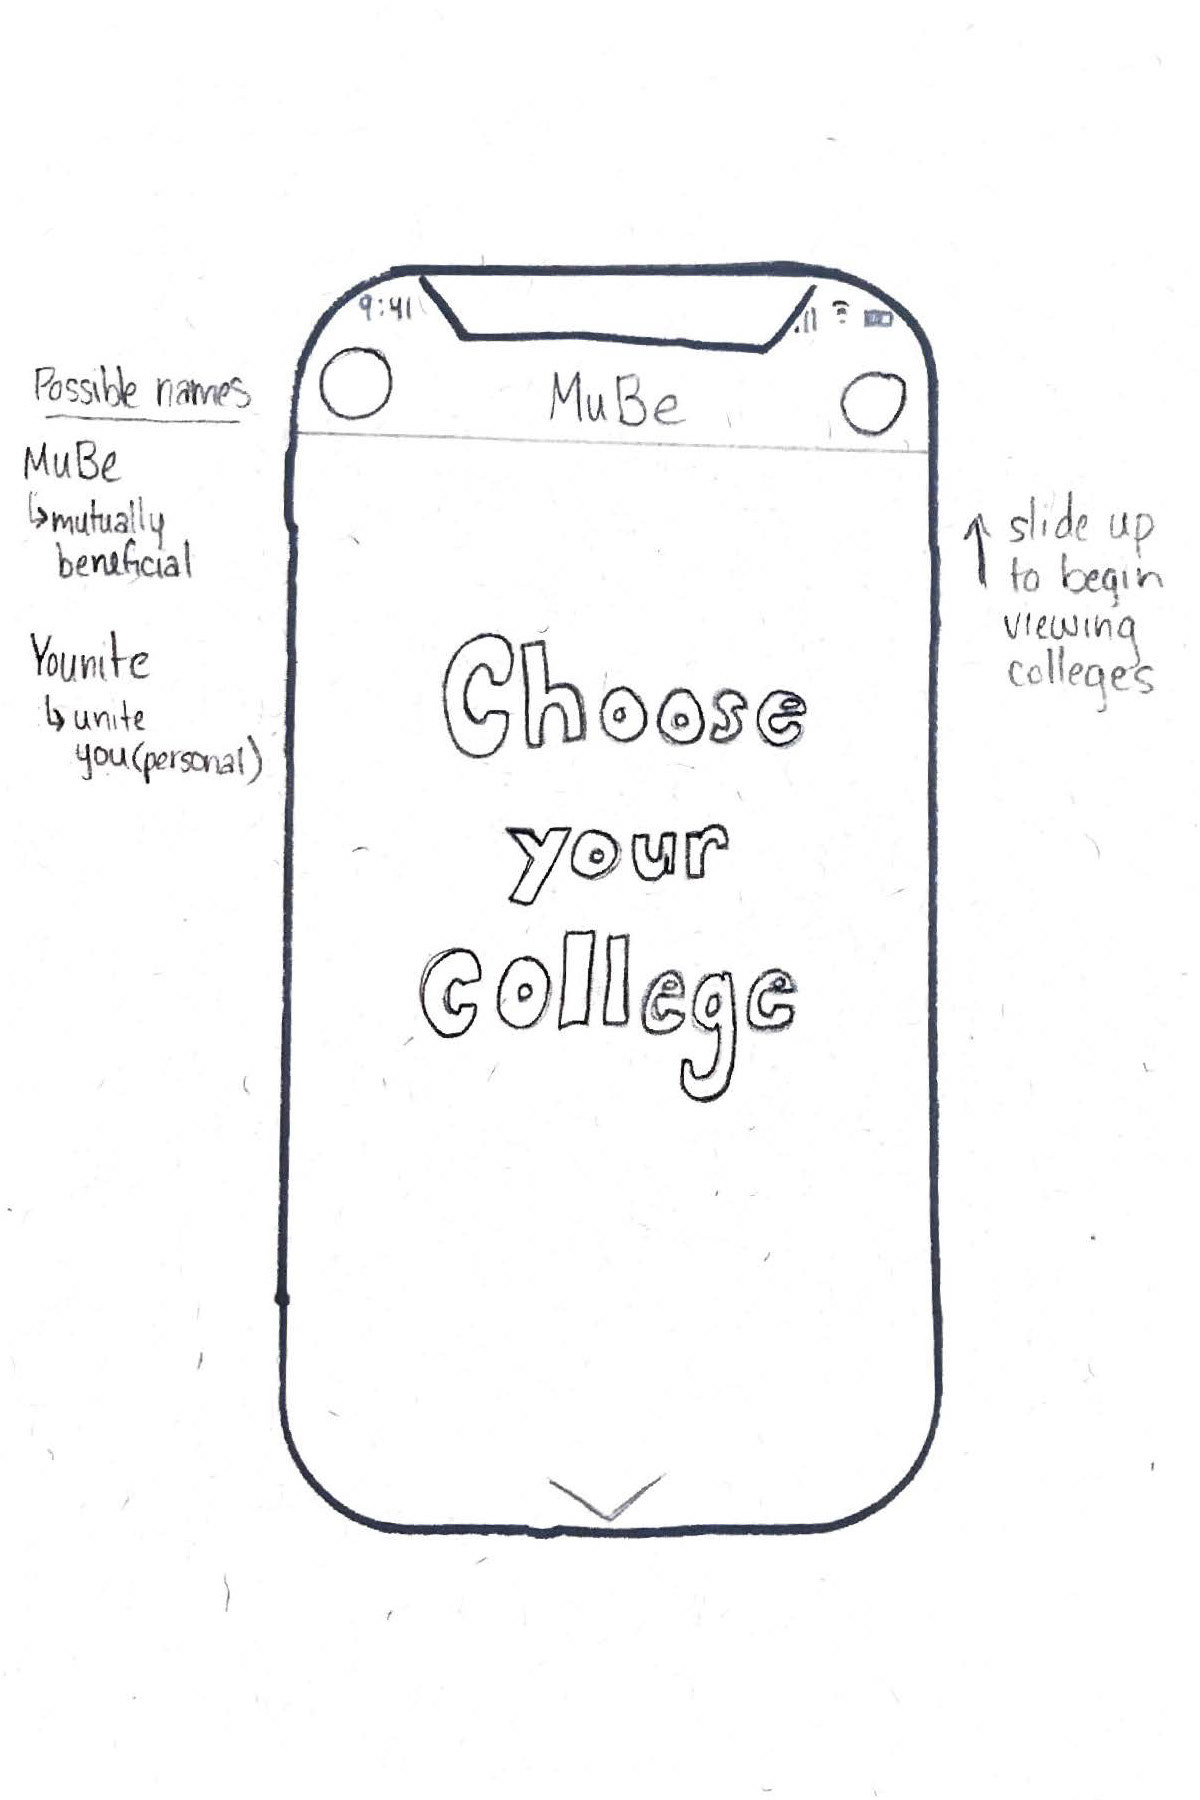 9:41
MuBe
Possible names
MuBe
↳mutually
beneficial
Younite
↳unite
you(personal)
Choose
your
college
↑ slide up
to begin
viewing
colleges